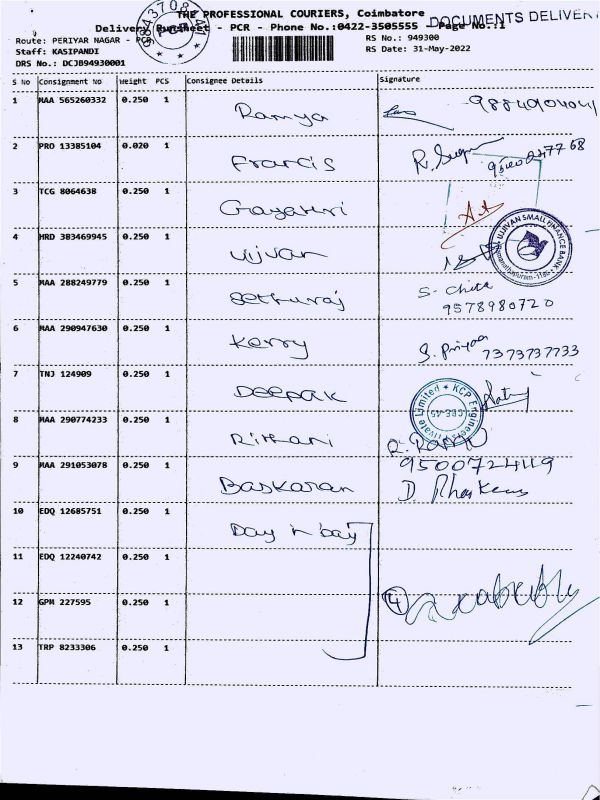 THE PROFESSIONAL COURIERS, Coimbatore
DOCUMENTS DELIVERY
Delivery Runsheet - PCR - Phone No.:0422-3505555 - Page No.:1
Route: PERIYAR NAGAR - PCR
RS No.: 949300
Staff: KASIPANDI
RS Date: 31-May-2022
DRS No.: DCJB94930001
S No Consignment No Weight PCS Consignee Details Signature
1 MAA 565260332 0.250 1 Ramya
2 PRO 13385104 0.020 1 Francis
3 TCG 8064638 0.250 1 Gayathri
4 HRD 383469945 0.250 1 Ujjvan
UJJIVAN SMALL FINANCE BANK
5 MAA 288249779 0.250 1 Sethuraj S. Chita
9578980720
6 MAA 290947630 0.250 1 Kerry S. Priyaa 7373737733
7 TNJ 124909 0.250 1 Deepak
KCP Engineers Private Limited
CBE-45
8 MAA 290774233 0.250 1 Rithani
9 MAA 291053078 0.250 1 Baskaran
10 EDQ 12685751 0.250 1 Day n Day
11 EDQ 12240742 0.250 1
12 GPM 227595 0.250 1 4
13 TRP 8233306 0.250 1